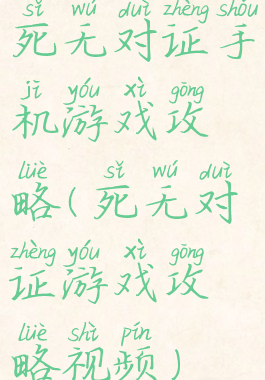 sǐ wú duì zhèng shǒu
死无对证手
jī yóu xì gōng
机游戏攻
lüè sǐ wú duì
略(死无对
zhèng yóu xì gōng
证游戏攻
lüè shì pín
略视频)